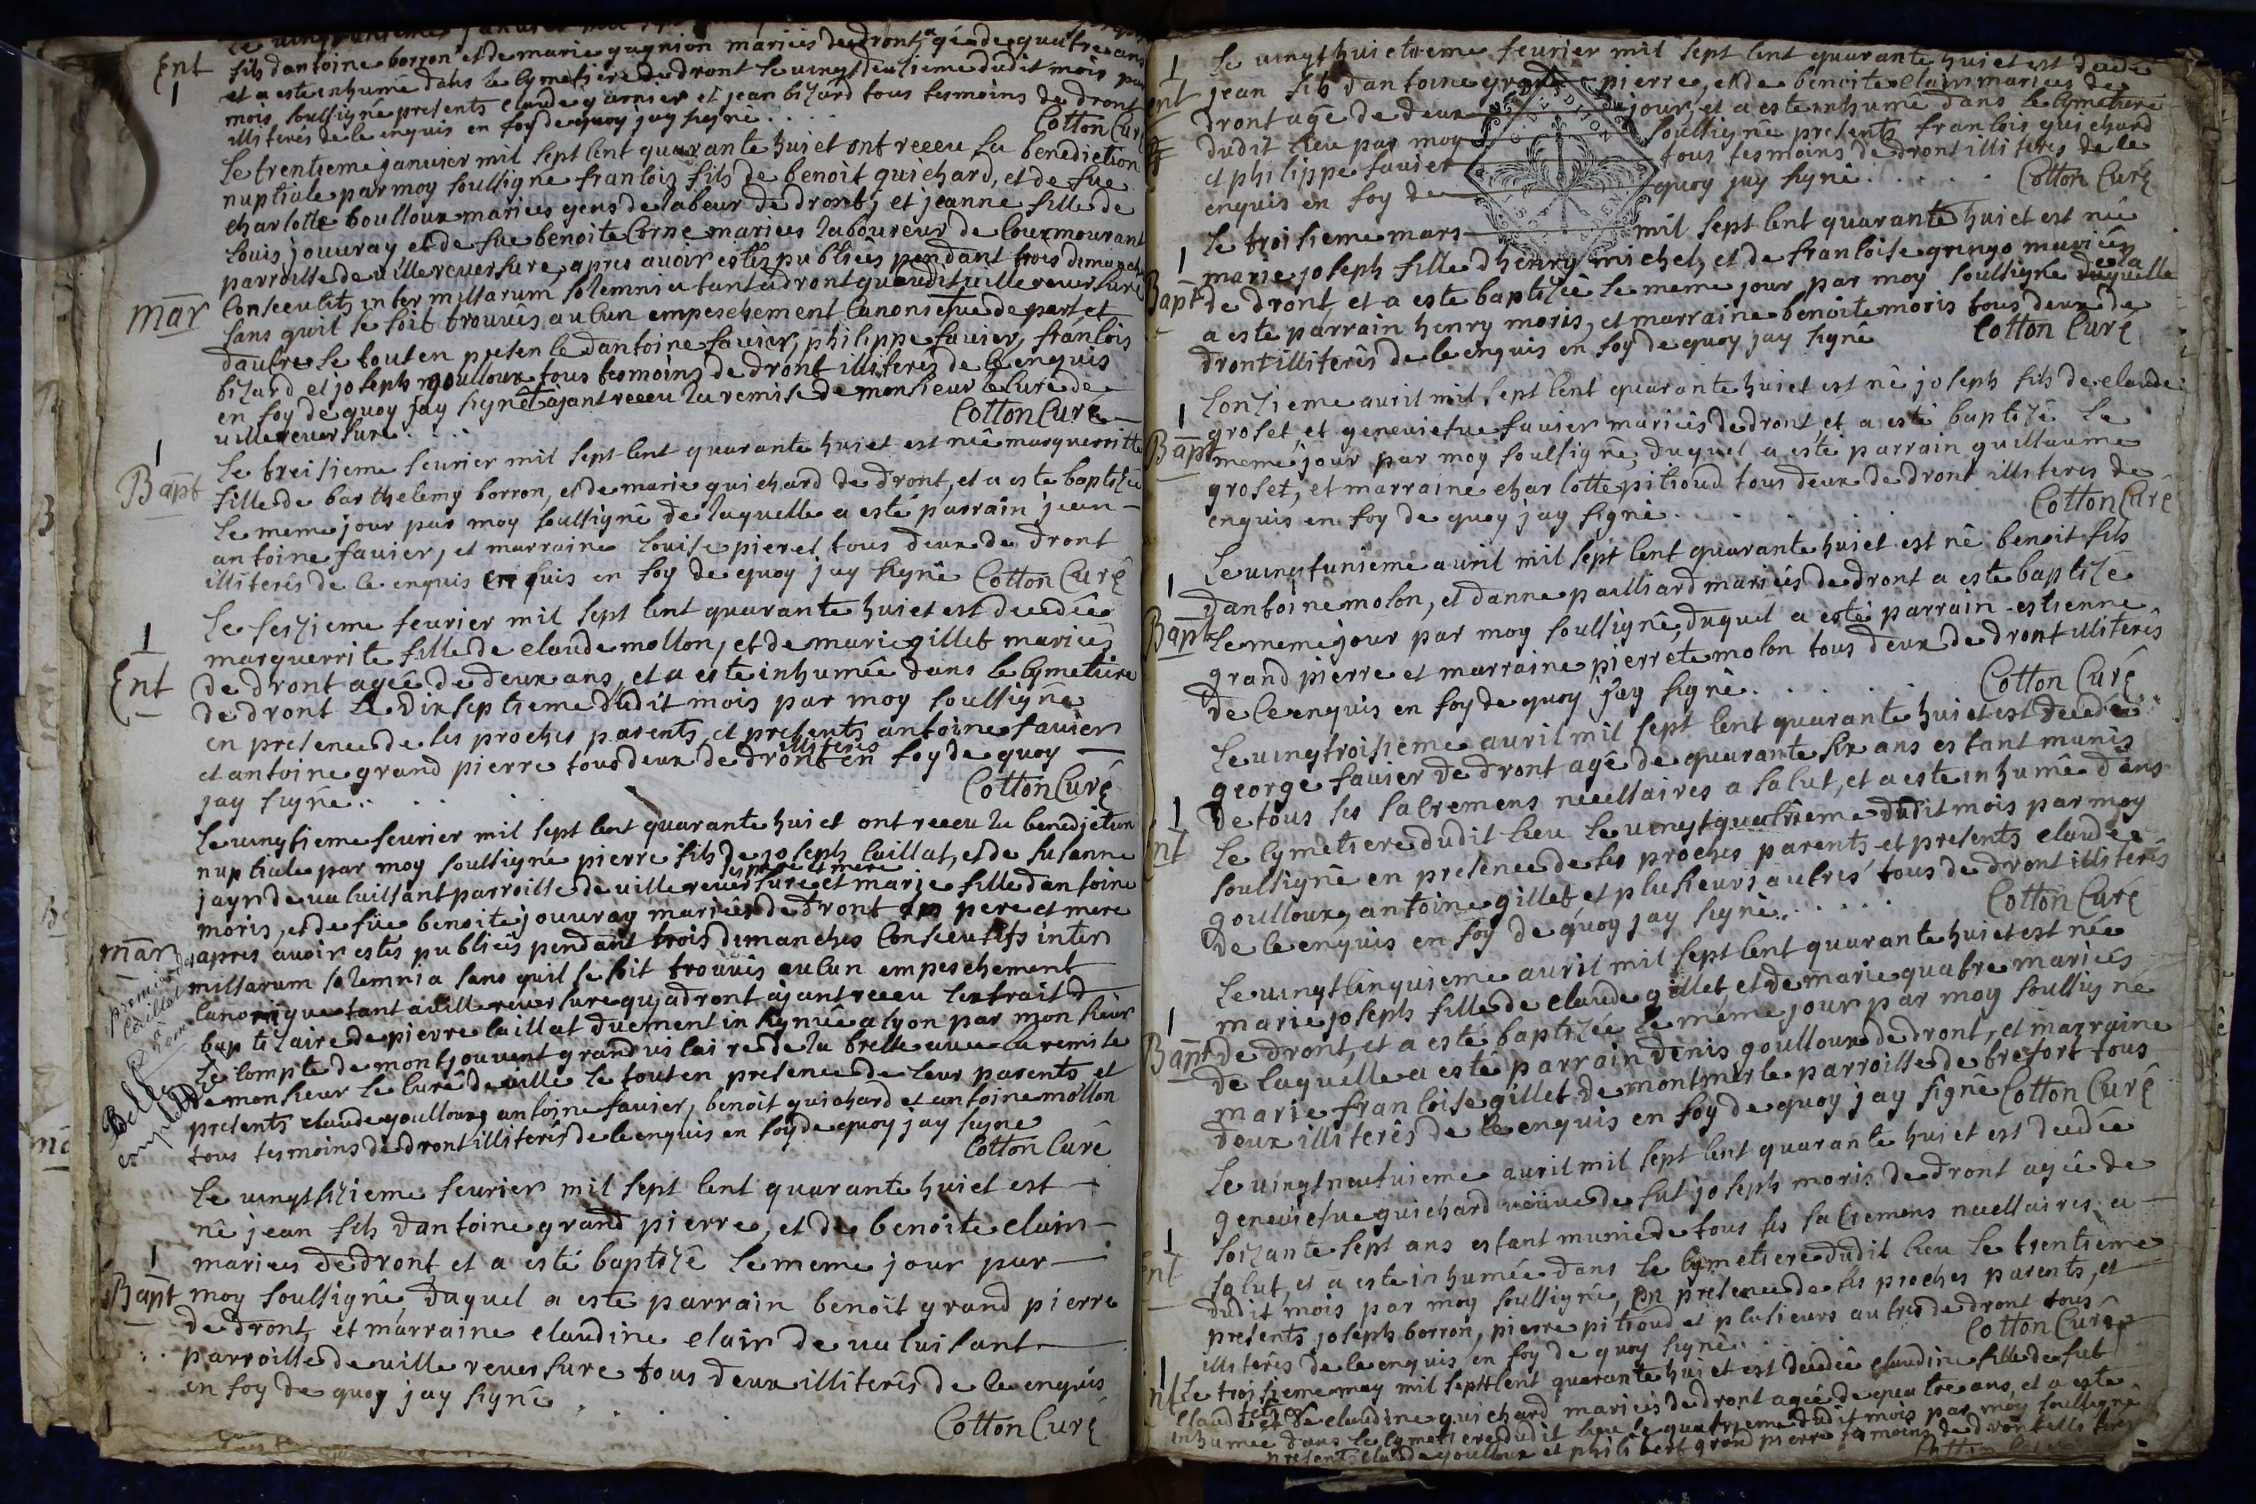 Ent
1
fils dantoine borron et de marie gagnion mariés de dront agé de quatre ans
et a esté inhumé dans le cymetiere de dront le vingt deuzieme dudit mois par
mois soussigné presents claude garnier et jean bizard tous tesmoins de dront
illiterés de ce enquis en foy de quoy jay signé . . . . Cotton Curé
Le trentieme janvier mil sept cent quarante huict ont receu la benediction
nuptiale par moy soussigné francois fils de benoit guichard, et de fue
charlotte boulloux mariees gens de labeur de dront, et jeanne fille de
louis jouvray et de fue benoite Corne mariees laboureur de Courmourant
mar
parroisse de villereversure, apres avoir estés publiées pendant trois dimanches
Consecutifs inter missarum solemnia tant a dront quaudit villereversure
sans quil se soit trouvés aucun empeschement Canonicque de part et
dautre le tout en presence dantoine favier, philippe favier, francois
bizard et joseph goulloux tous tesmoins de dront illiterés de ce enquis
en foy de quoy jay signé ajant receu la remise de monsieur le curé de
villereversure . . . Cotton Curé
1
Bapt
Le treisieme fevrier mil sept cent quarante huict est née marguerritte
fille de barthelemy borron, et de marie guichard de dront, et a esté baptizée
le meme jour par moy soussigné de laquelle a esté parrain jean
antoine favier, et marraine louise pieret tous deux de dront
illiterés de ce enquis en foy de quoy jay signé Cotton Curé
1
Ent
Le seszieme fevrier mil sept cent quarante huict est decedée
marguerrite fille de claude mollon, et de marie gillet mariées
de dront agée de deux ans, et a esté inhumée dans le cymetiere
de dront le dix septieme dudit mois par moy soussigné
en presence de ses proches parents, et presents antoine favier
et antoine grand pierre tous deux de dront illiterés en foy de quoy
jay signé . . . . Cotton Curé
Le vingtieme fevrier mil sept cent quarante huict ont receu la benediction
nuptiale par moy soussigné pierre fils de joseph caillat, et de susanne
jayr de valuisant parroisse de villereversure ses pere et mere et marie fille dantoine
moris, et de füe benoite jouvray mariées de dront ses pere et mere
mar
apres avoir estés publiées pendant trois dimanches Consecutifs inter
missarum solemnia sans quil se soit trouvés aucun empeschement
canonique tant a villereversure qua dront ajant receu lextrait
baptizaire de pierre caillat duement insignuée a lyon par monsieur
le compte de montjouvent grand vicaire de la bresse avec la remise
de monsieur le curé de ville le tout en presence de leur parents et
presents claude goulloux, antoine favier, benoit guichard et antoine mollon
tous tesmoins de dront illiterés de ce enquis en foy de quoy jay signé
Cotton Curé
Le vingt sizieme fevrier mil sept cent quarante huict est
né jean fils dantoine grand pierre, et de benoite clair
1
Bapt
mariees de dront et a esté baptizé le meme jour par
moy soussigné, duquel a esté parrain benoit grand pierre
de dront et marraine claudine clair de valuisant
parroisse de villereversure tous deux illiterés de ce enquis
en foy de quoy jay signé . . . .
Cotton Curé
1
Ent
Le vingt huictieme fevrier mil sept cent quarante huict est decedé
jean fils dantoine grand pierre, et de benoite clair mariees de
dront agé de deux jour, et a esté inhumé dans le cymetiere
dudit lieu par moy soussigné presents francois guichard
et philippe favier tous tesmoins de dront illiterés de ce
enquis en foy de quoy jay signé . . . . . Cotton Curé
1
Bapt
Le troisieme mars mil sept cent quarante huict est née
marie joseph fille dhenry michel, et de francoise gringo mariées
de dront, et a esté baptizée le meme jour par moy soussigné de la quelle
a esté parrain henry moris, et marraine benoite moris tous deux de
dront illiterés de ce enquis en foy de quoy jay signé Cotton Curé
1
Bapt
Lonzieme avril mil sept cent quarante huict est né joseph fils de claude
groset, et geneviefve favier mariées de dront, et a esté baptizé le
meme jour par moy soussigné, duquel a esté parrain guillaume
groset, et marraine charlotte pitioud tous deux de dront illiterés de
enquis en foy de quoy jay signé . . . . Cotton Curé
1
Bapt
Le vingtunieme avril mil sept cent quarante huict est né benoit fils
dantoine molon, et danne pailliard mariées de dront a esté baptizé
le meme jour par moy soussigné, duquel a esté parrain estienne
grand pierre et marraine pierrete molon tous deux de dront illiterés
de ce enquis en foy de quoy jay signé . . . . Cotton Curé
1
Ent
Le vingtroisieme avril mil sept cent quarante huict est decedé
george favier de dront agé de quarante six ans estant munis
de tous ses sacremens necessaires a salut, et a esté inhumé dans
le cymetiere dudit lieu le vingtquatrieme dudit mois par moy
soussigné en presence de ses proches parents et presents claude
goulloux, antoine gillet et plusieurs autres tous de dront illiterés
de ce enquis en foy de quoy jay signé . . . . . Cotton Curé
1
Bapt
Le vingtcinquieme avril mil sept cent quarante huict est née
marie joseph fille de claude gillet et de marie quatre mariées
de dront, et a esté baptizée le meme jour par moy soussigné
de laquelle a esté parrain denis goulloux de dront, et marraine
marie francoise gillet de montmerle parroisse de trefort tous
deux illiterés de ce enquis en foy de quoy jay signé Cotton Curé
1
Ent
Le vingtneufvieme avril mil sept cent quarante huict est decedée
geneviefve guichard veüve de fut joseph moris de dront agée de
soizante sept ans estant munie de tous ses sacremens necessaires a
salut, et a esté inhumée dans le cymetiere dudit lieu le trentieme
dudit mois par moy soussigné, en presence de ses proches parents, et
presents joseph borron, pierre pitioud et plusieurs autres de dront tous
illiterés de ce enquis en foy de quoy signé . . . Cotton Curé
1
Ent
Le troisieme may mil sept cent quarante huict est decedée claudine fille de fut
claude et de claudine guichard mariées de dront agée de quatre ans, et a esté
inhumée dans le cymetiere dudit lieu le quatrieme dudit mois par moy soussigné
presents claude goulloux et philibert grand pierre tesmoins de dront